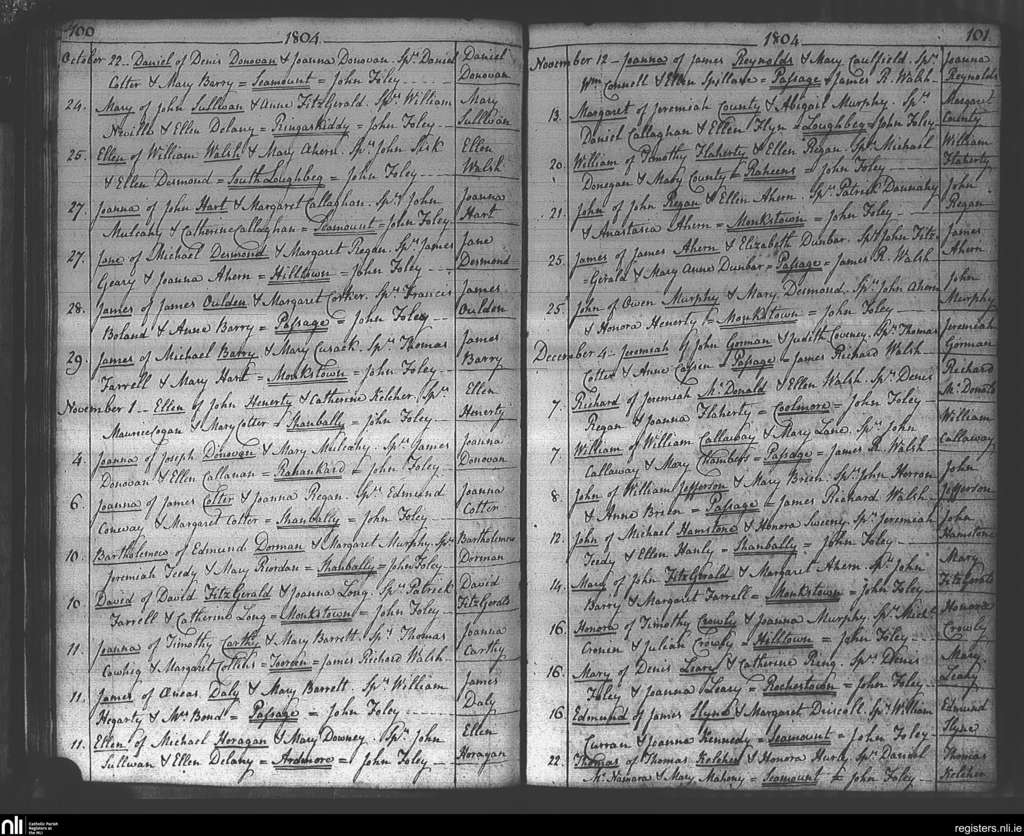 100
1804
October 22 - Daniel of Denis Donovan & Joanna Donovan. Sprs Daniel
Daniel
Cotter & Mary Barry = Seamount = John Foley
Donovan
24. Mary of John Sullivan & Anne FitzGerald. Sprs William
Mary
Neville & Ellen Delany = Ringaskiddy = John Foley
Sullivan
25. Ellen of William Walsh & Mary Ahern. Sprs John
Ellen
& Ellen Desmond = South Loughbeg = John Foley
Walsh
27. Joanna of John Hart & Margaret Callaghan. Sprs John
Joanna
Mulcahy & Catherine Callaghan = Seamount = John Foley
Hart
27. Jane of Michael Desmond & Margaret Regan. Sprs James
Jane
Geary & Joanna Ahern = Hilltown = John Foley
Desmond
28. James of James Oulden & Margaret Corker. Sprs Francis
James
Boland & Anne Barry = Passage = John Foley
Oulden
29. James of Michael Barry & Mary Cusack. Sprs Thomas
James
Farrell & Mary Hart = Monkstown = John Foley
Barry
November 1 - Ellen of John Henerty & Catherine Kelcher. Sprs
Ellen
Maurice Cogan & Mary Cotter = Shanbally = John Foley
Henerty
4. Joanna of Joseph Donovan & Mary Mulcahy. Sprs James
Joanna
Donovan & Ellen Callanan = Rahankard = John Foley
Donovan
6. Joanna of James Cotter & Joanna Regan. Sprs Edmund
Joanna
Conway & Margaret Cotter = Shanbally = John Foley
Cotter
10. Bartholemew of Edmund Dorman & Margaret Murphy. Sprs
Bartholemew
Jeremiah Teedy & Mary Riordan = Shanbally = John Foley
Dorman
10. David of David FitzGerald & Joanna Long. Sprs Patrick
David
Farrell & Catherine Long = Monkstown = John Foley
FitzGerald
11. Joanna of Timothy Carthy & Mary Barrett. Sprs Thomas
Joanna
Cawhig & Margaret = Tooreen = James Richard Walsh
Carthy
11. James of Œneas Daly & Mary Barrett. Sprs William
James
Hegarty & Mrs Bond = Passage = John Foley
Daly
11. Ellen of Michael Horagan & Mary Downey. Sprs John
Ellen
Sullivan & Ellen Delany = Ardmore = John Foley
Horagan
1804
101
November 12 - Joanna of James Reynolds & Mary Caulfield. Sprs
Joanna
Wm Connell & Ellen Spillane = Passage = James R. Walsh
Reynolds
13. Margaret of Jeremiah County & Abigail Murphy. Sprs
Margaret
Daniel Callaghan & Ellen Flyn = Loughbeg = John Foley
County
20. William of Timothy Flaherty & Ellen Regan. Sprs Michael
William
Donegan & Mary County = Raheens = John Foley
Flaherty
21. John of John Regan & Ellen Ahern. Sprs Patrick Dannahy
John
& Anastasia Ahern = Monkstown = John Foley
Regan
25. James of James Ahern & Elizabeth Dunbar. Sprs John Fitz
James
-Gerald & Mary Anne Dunbar = Passage = James R. Walsh
Ahern
25. John of Owen Murphy & Mary Desmond. Sprs John Ahern
John
& Honora Henerty = Monkstown = John Foley
Murphy
December 4 - Jeremiah of John Gorman & Judith Coveney. Sprs Thomas
Jeremiah
Cotter & Anne = Passage = James Richard Walsh
Gorman
7. Richard of Jeremiah McDonald & Ellen Walsh. Sprs Denis
Richard
Regan & Joanna Flaherty = Coolmore = John Foley
McDonald
7. William of William Callaway & Mary Lane. Sprs John
William
Callaway & Mary Chambers = Passage = James R. Walsh
Callaway
8. John of William Jefferson & Mary Brien. Sprs John Herron
John
& Anne Brien = Passage = James Richard Walsh
Jefferson
12. John of Michael Hamstone & Honora Sweeny. Sprs Jeremiah
John
Teedy & Ellen Hanly = Shanbally = John Foley
Hamstone
14. Mary of John FitzGerald & Margaret Ahern. Sprs John
Mary
Barry & Margaret Farrell = Monkstown = John Foley
FitzGerald
16. Honora of Timothy Crowly & Joanna Murphy. Sprs Michl
Honora
Cronin & Julian Crowly = Hilltown = John Foley
Crowly
16. Mary of Denis Leary & Catherine Ring. Sprs Denis
Mary
Foley & Joanna Leary = Rochestown = John Foley
Leahy
16. Edmund of James Flyne & Margaret Driscoll. Sprs William
Edmund
Curran & Joanna Kennedy = Seamount = John Foley
Flyne
22. Thomas of Thomas Kelcher & Honora Hurly. Sprs Daniel
Thomas
McNamara & Mary Mahony = Seamount = John Foley
Kelcher
nli
Catholic Parish
Registers at
the NLI
registers.nli.ie